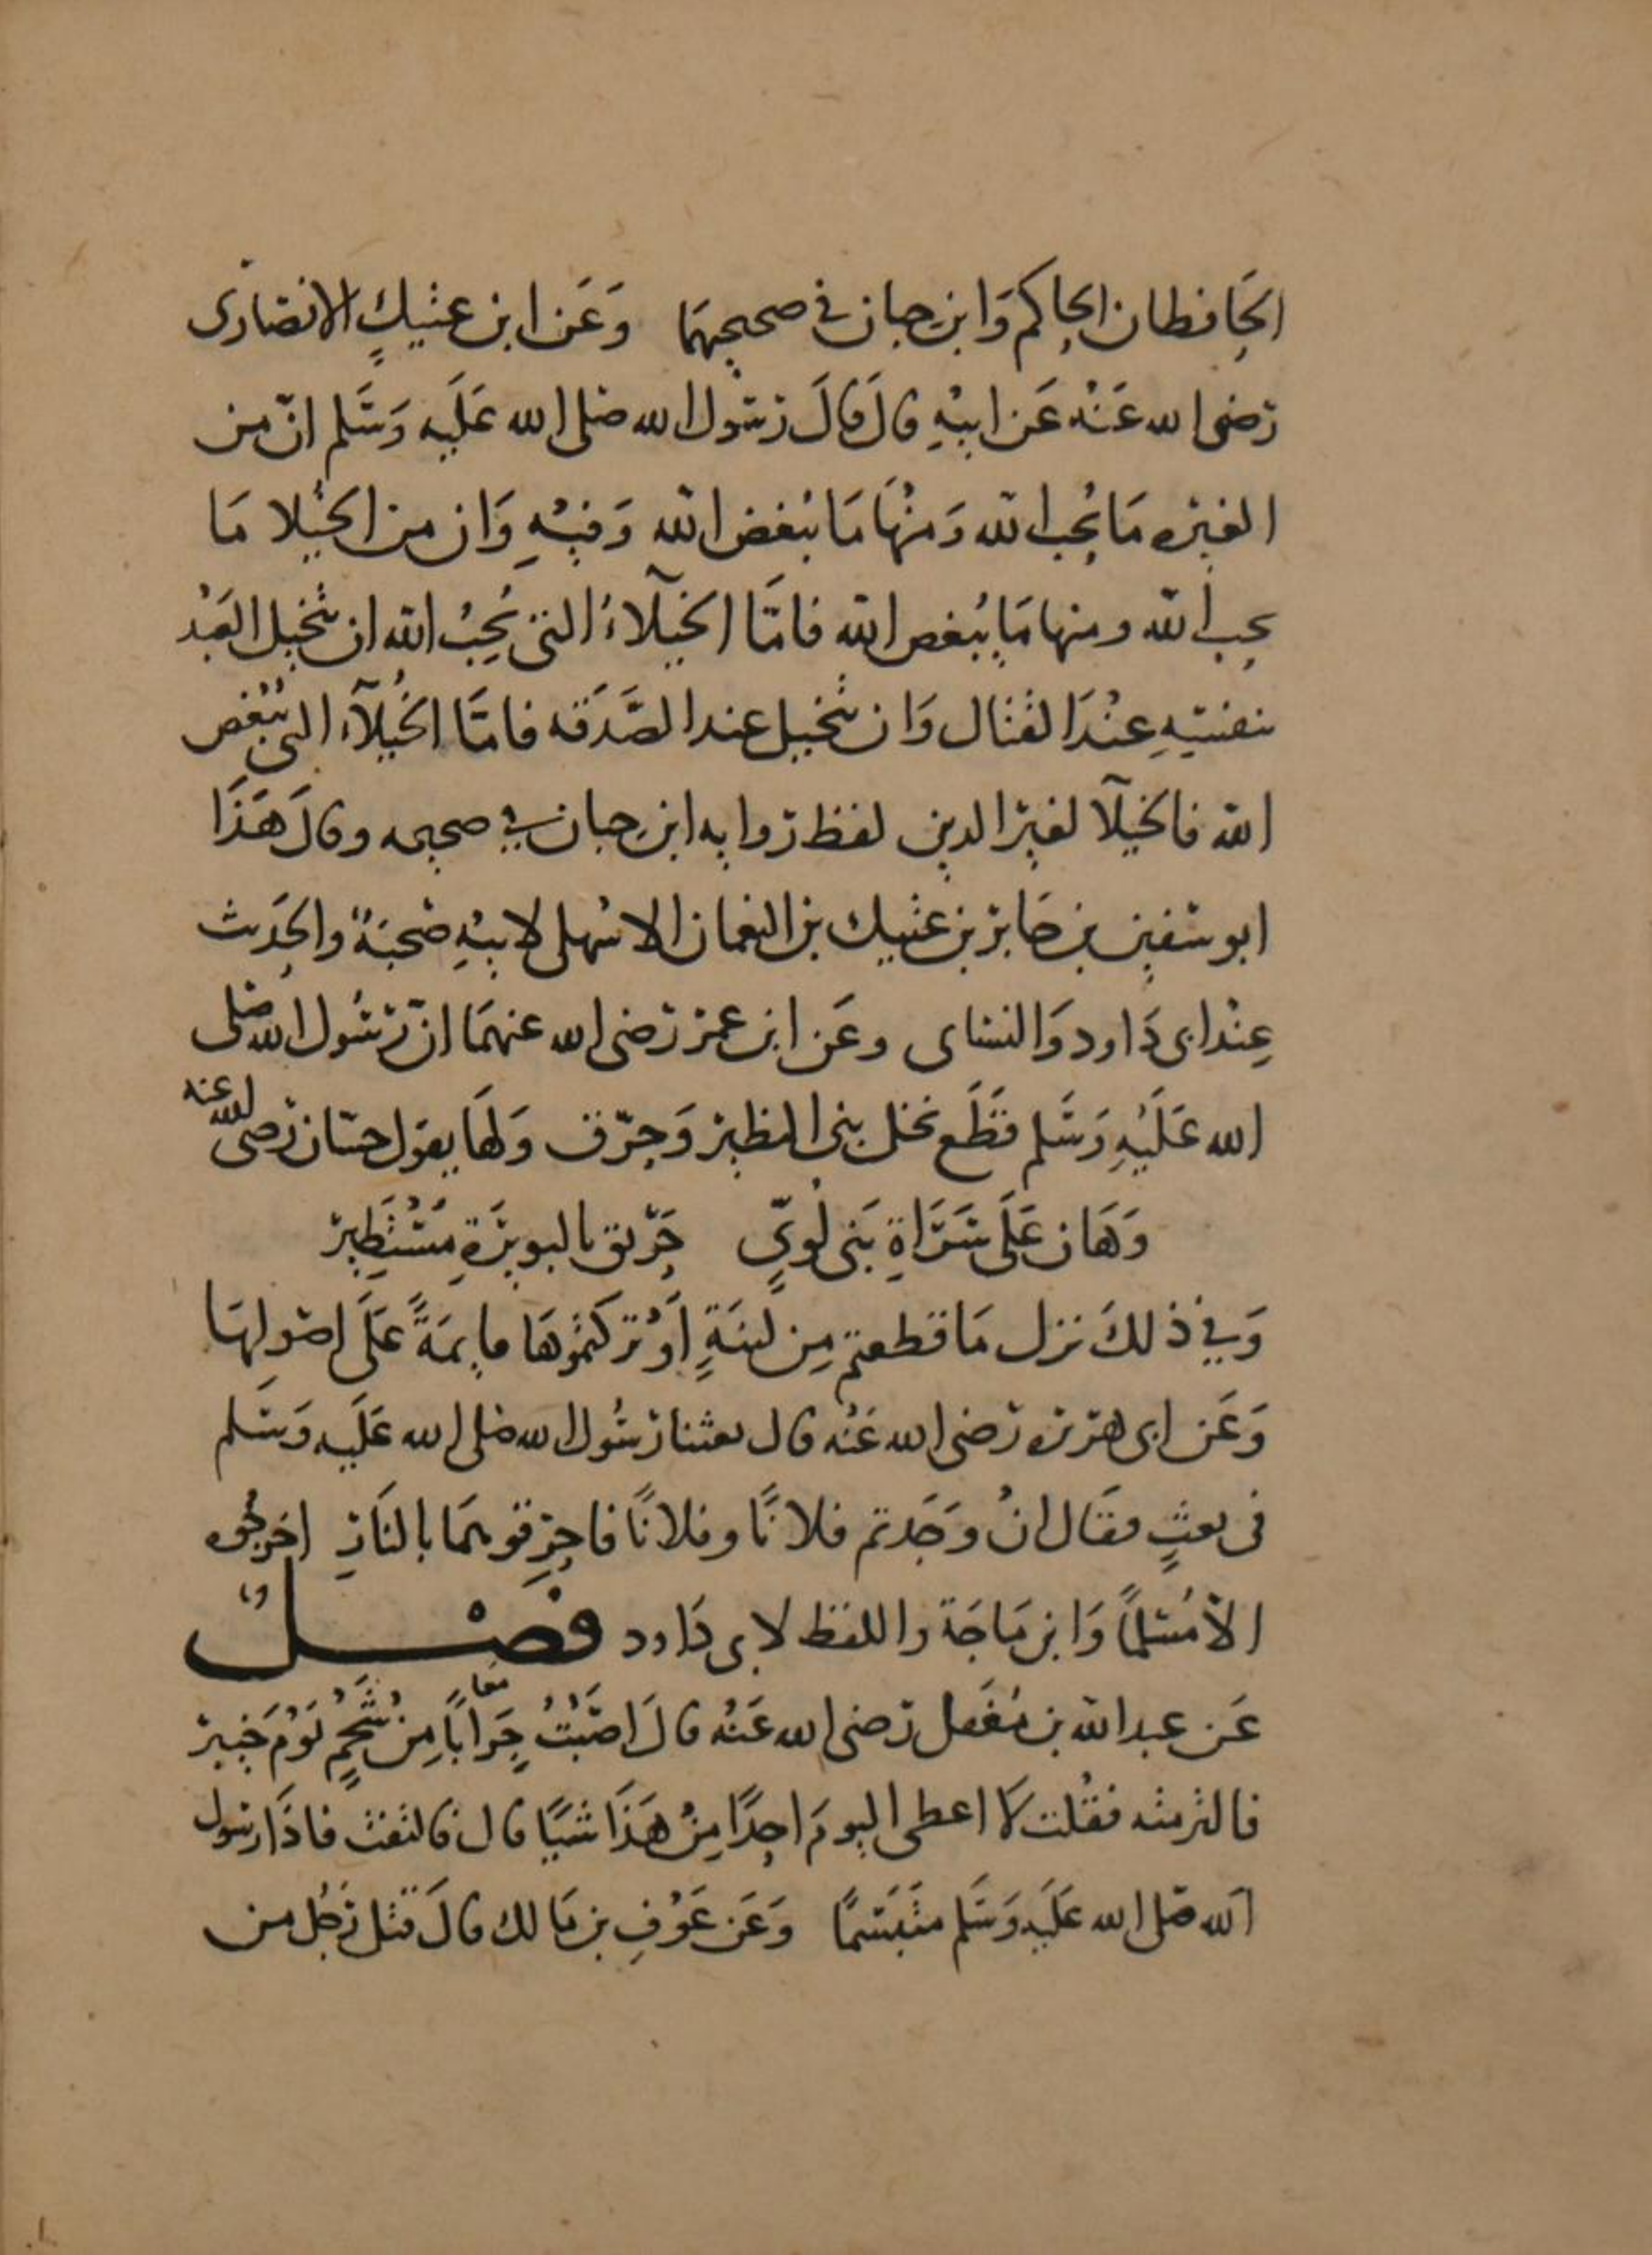 الحَافظان الحاكم وَابن حبان في صحيحيهمَا وَعَن ابن عتيكٍ الانصَارى
رَضى الله عَنْهُ عَن ابيْهِ قالَ قالَ رَسُول الله صَلى الله عَلَيه وَسَلم انّ من
الغيره مَا يُحب الله وَمنْهَا مَا يُبغض الله وَفيْهِ وَان من الخيُلا مَا
يحب الله ومنها مَا يُبغض الله فامَّا الخيَلآءُ التى يُحِبُ الله ان يتخيل العَبْد
بنفسِهِ عنْدَ القتال وَان يتخيل عند الصَّدَقه فامّا الخُيلآء التى يُبْغض
الله فالخيلآ لغير الدين لفظ روايه ابن حبان في صحيحه وقالَ هَذَا
ابو سفين بن جَابر بن عتيك بن النعمان الاشهلى لابيْهِ صُحبَةٌ والحَدِيث
عِنْد ابى دَاود وَالنساى وعَن ابن عمر رَضى الله عنهمَا انّ رَسُول الله صَلى
الله عَلَيْهِ وَسَلم قَطَع نخل بنى النظير وَحرّق وَلهَا يقول حسّان رَضى الله عنه
وَهَان عَلَى سَرَاةِ بَنى لُوىٍّ حَرّيق بالبويرَةِ مُسْتَطِير
وَفي ذلكَ نزل مَا قطعتم مِن لينَةٍ اَوْ تركتموهَا قايمَةً عَلَى اصُولِهَا
وَعَن ابى هريره رَضى الله عَنْه قال بعثنا رَسُول الله صَلى الله عَلَيه وَسَلم
فى بعثٍ فقَال انْ وَجَدتم فلانًا وفلانًا فاحرِقوهمَا بالنَارِ اخرجُوه
الاّ مُسْلمًا وَابن مَاجَة واللفظ لابى دَاود فصْــل
عَن عبد الله بن مُغَفل رَضى الله عَنْه قالَ اصَبْتُ جِرَاباً معا مِن شَحْمٍ يَوْمَ خَيْبر
فالتزمته فقُلت لا اعطى اليومَ احِدًا مِنْ هَذَا شيًا قال فالتفت فاذَا رسول
الله صَلى الله عَلَيه وَسَلم متَبَسّمًا وَعَن عَوْفِ بن مَالك قالَ قتَل رَجُل من